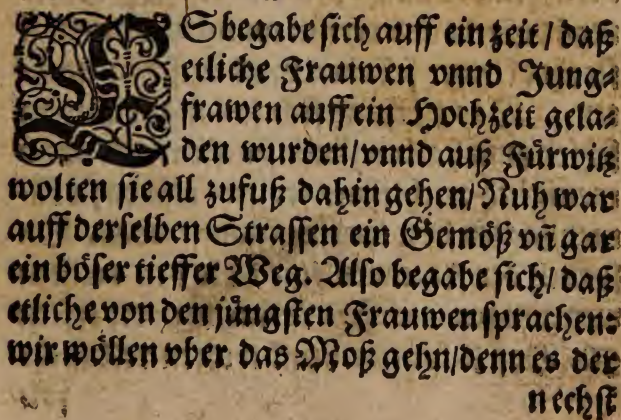 ES begabe sich auff ein zeit / daß
etliche Frauwen vnnd Jung⸗
frawen auff ein Hochzeit gela⸗
den wurden/vnnd auß Fürwitz
wolten sie all zufuß dahin gehen/Nuh war
auff derselben Strassen ein Gemöß vñ gar
ein böser tieffer Weg. Also begabe sich/ daß
etliche von den jüngsten Frauwen sprachen:
wir wöllen vber das Moß gehn/denn es der
nechst